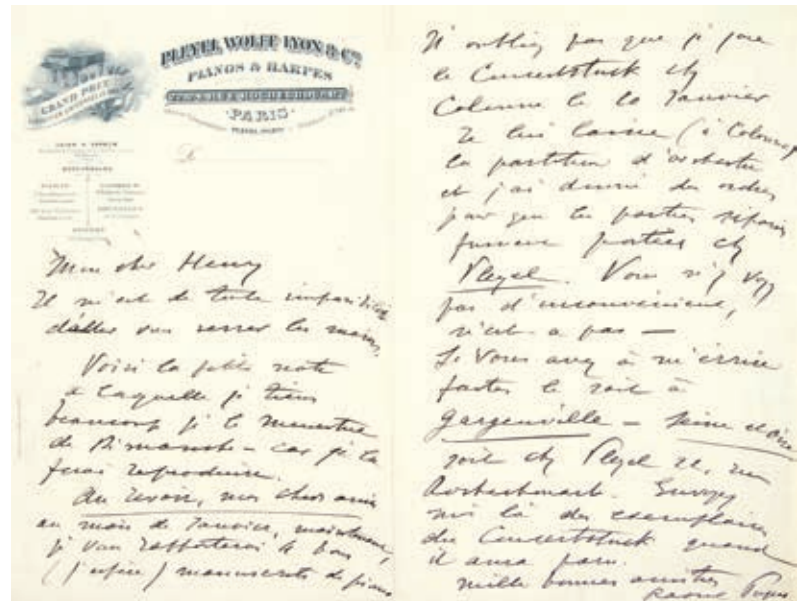 PLEYEL WOLFF LYON & Cie
PIANOS & HARPES
GRAND PRIX
PARIS
Mon cher Henry
Il m'est de toute impossibilité
d'aller vous serrer les mains,
Voici la petite note
à laquelle je tiens
beaucoup pr le Menestrel
de Dimanche – car je la
ferai reproduire.
Au revoir, mes chers amis
au mois de Janvier, maintenant,
je vous rapporterai de bons
(j'espère) manuscrits de piano
N'oubliez pas que je joue
le Concertstuck chez
Colonne le 20 Janvier
Je lui laisse (à Colonne)
la partition d'orchestre
et j'ai donné des ordres
pour que les parties séparées
fussent portées chez
Pleyel. Vous n'y voyez
pas d'inconvénient,
n'est-ce pas –
Si vous avez à m'écrire
faites le soit à
Gargenville – Seine et Oise
soit chez Pleyel 22, rue
Rochechouart. Envoyez
moi là des exemplaires
du Concertstuck quand
il aura paru.
Mille bonnes amitiés
Raoul Pugno